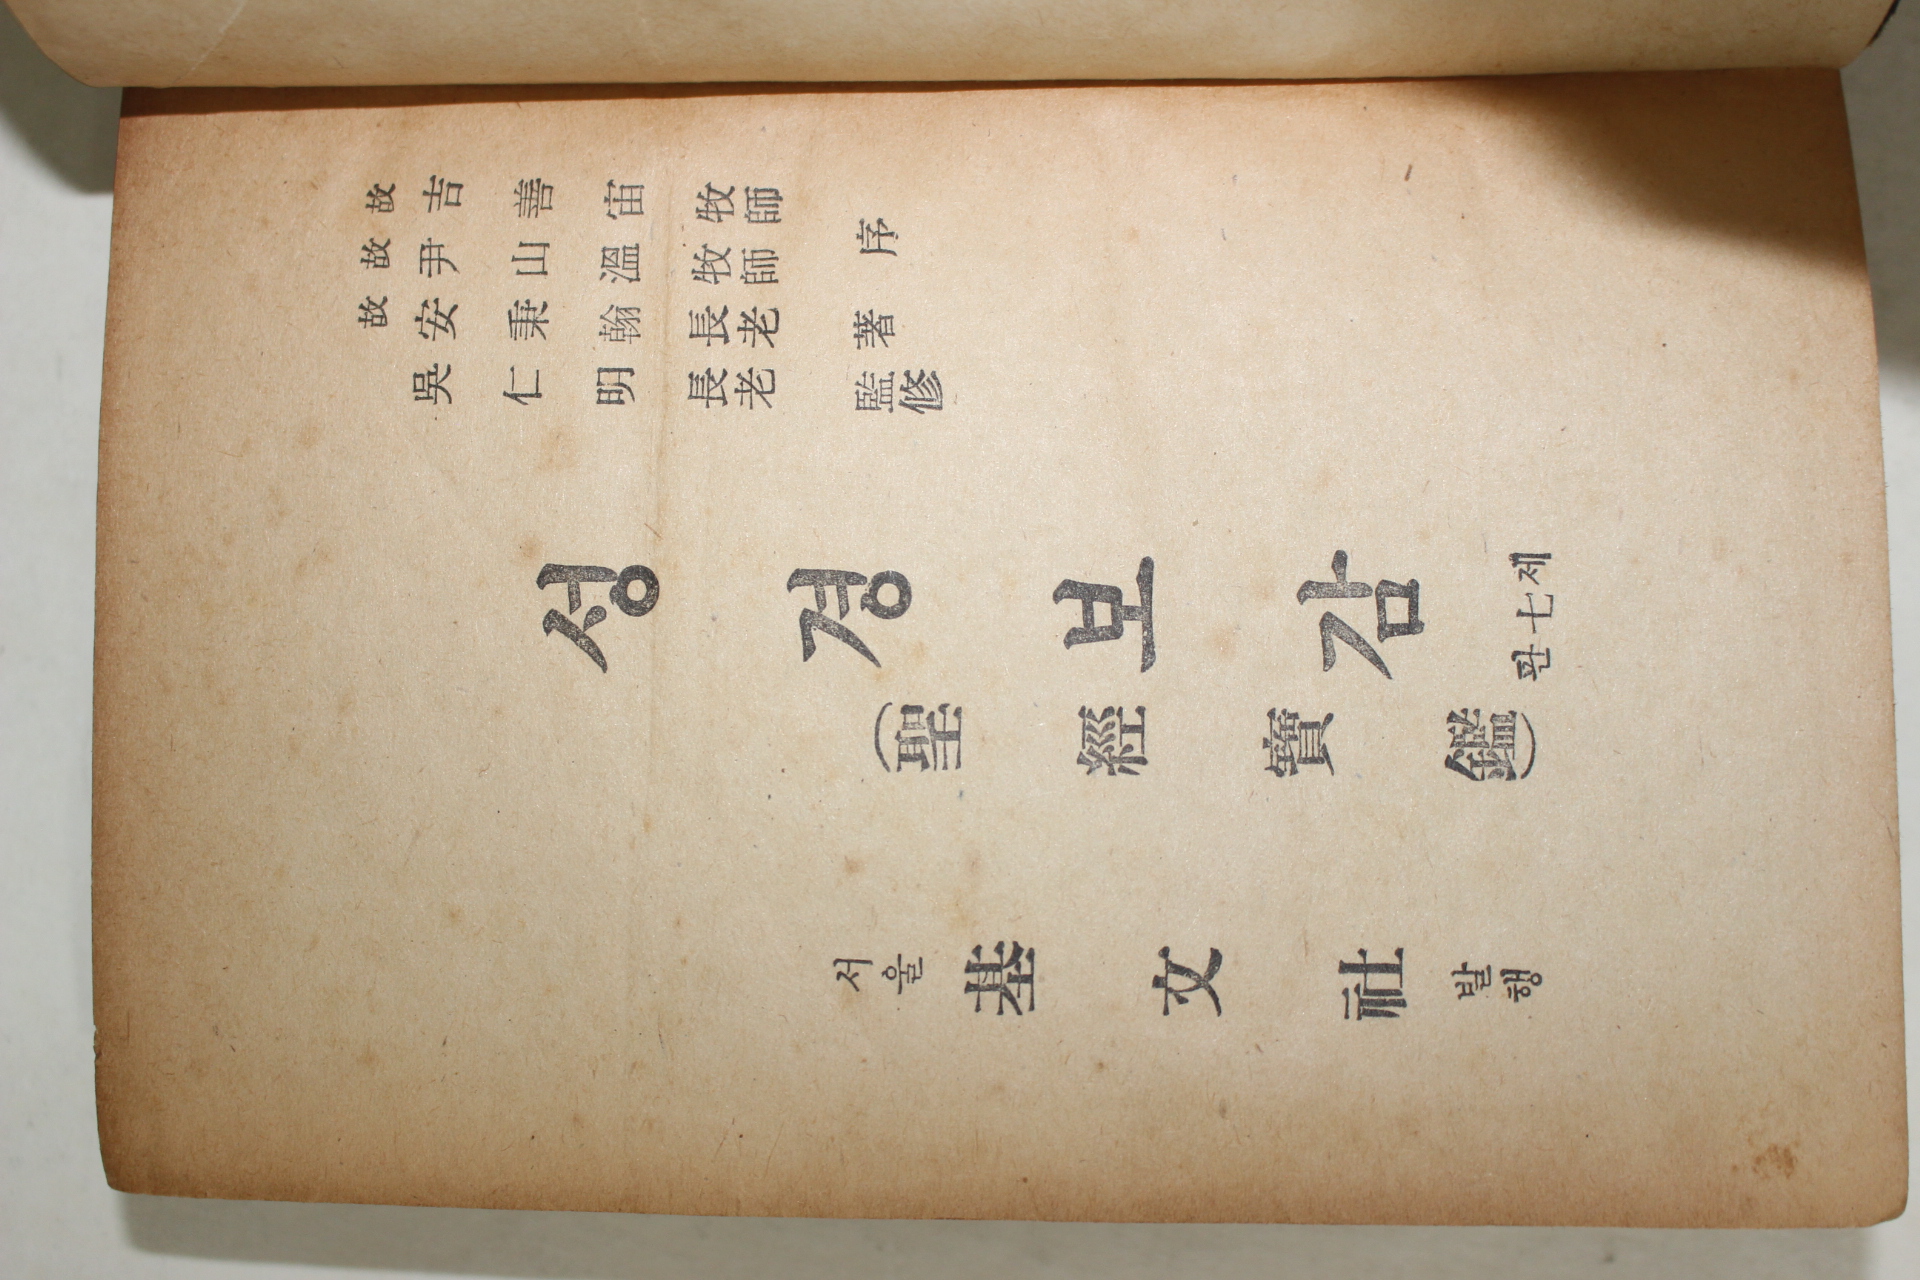 故 吉善宙 牧師
故 尹山溫 牧師 序
故 安秉翰 長老 著
吳仁明 長老 監修
성경보감 제七판
(聖經寶鑑)
서울 基文社 발행